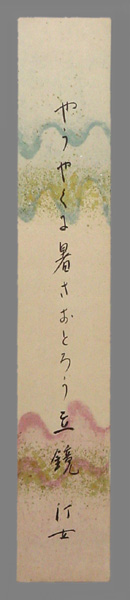 やうやくに暑さおとろう立鏡 汀女